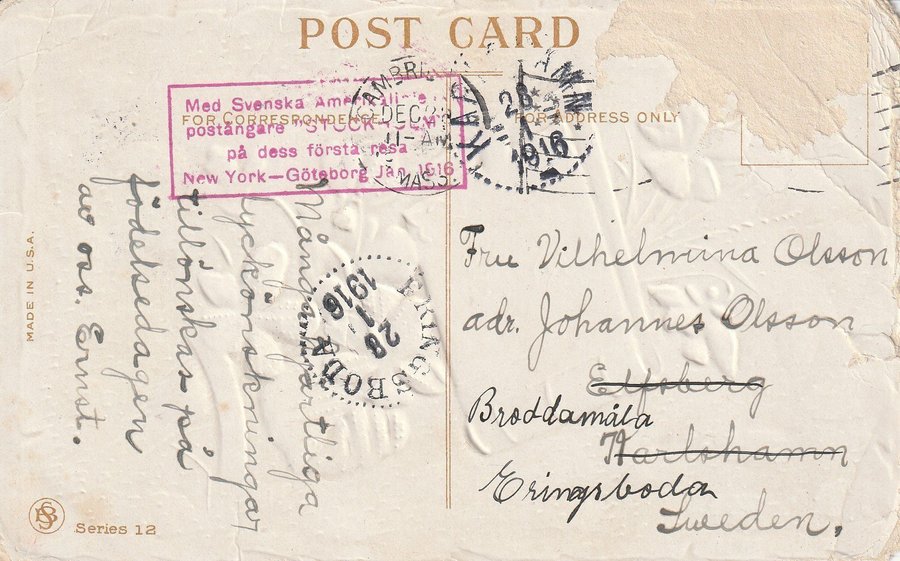 POST CARD
FOR CORRESPONDENCE
FOR ADDRESS ONLY
Med Svenska Amerikalinie
postångare "STOCKHOLM"
på dess första resa
New York—Göteborg Jan. 1916
DEC
11-AM
MASS.
28
1
1916
ERINGSBODA
28
1
1916
Mångahjärtliga
lyckönskningar
tillönskas på
födelsedagen
av oss. Ernst.
Fru Vilhelmina Olsson
adr. Johannes Olsson
Elfsberg
Broddamåla
Karlshamn
Eringsboda
Sweden.
MADE IN U.S.A.
Series 12